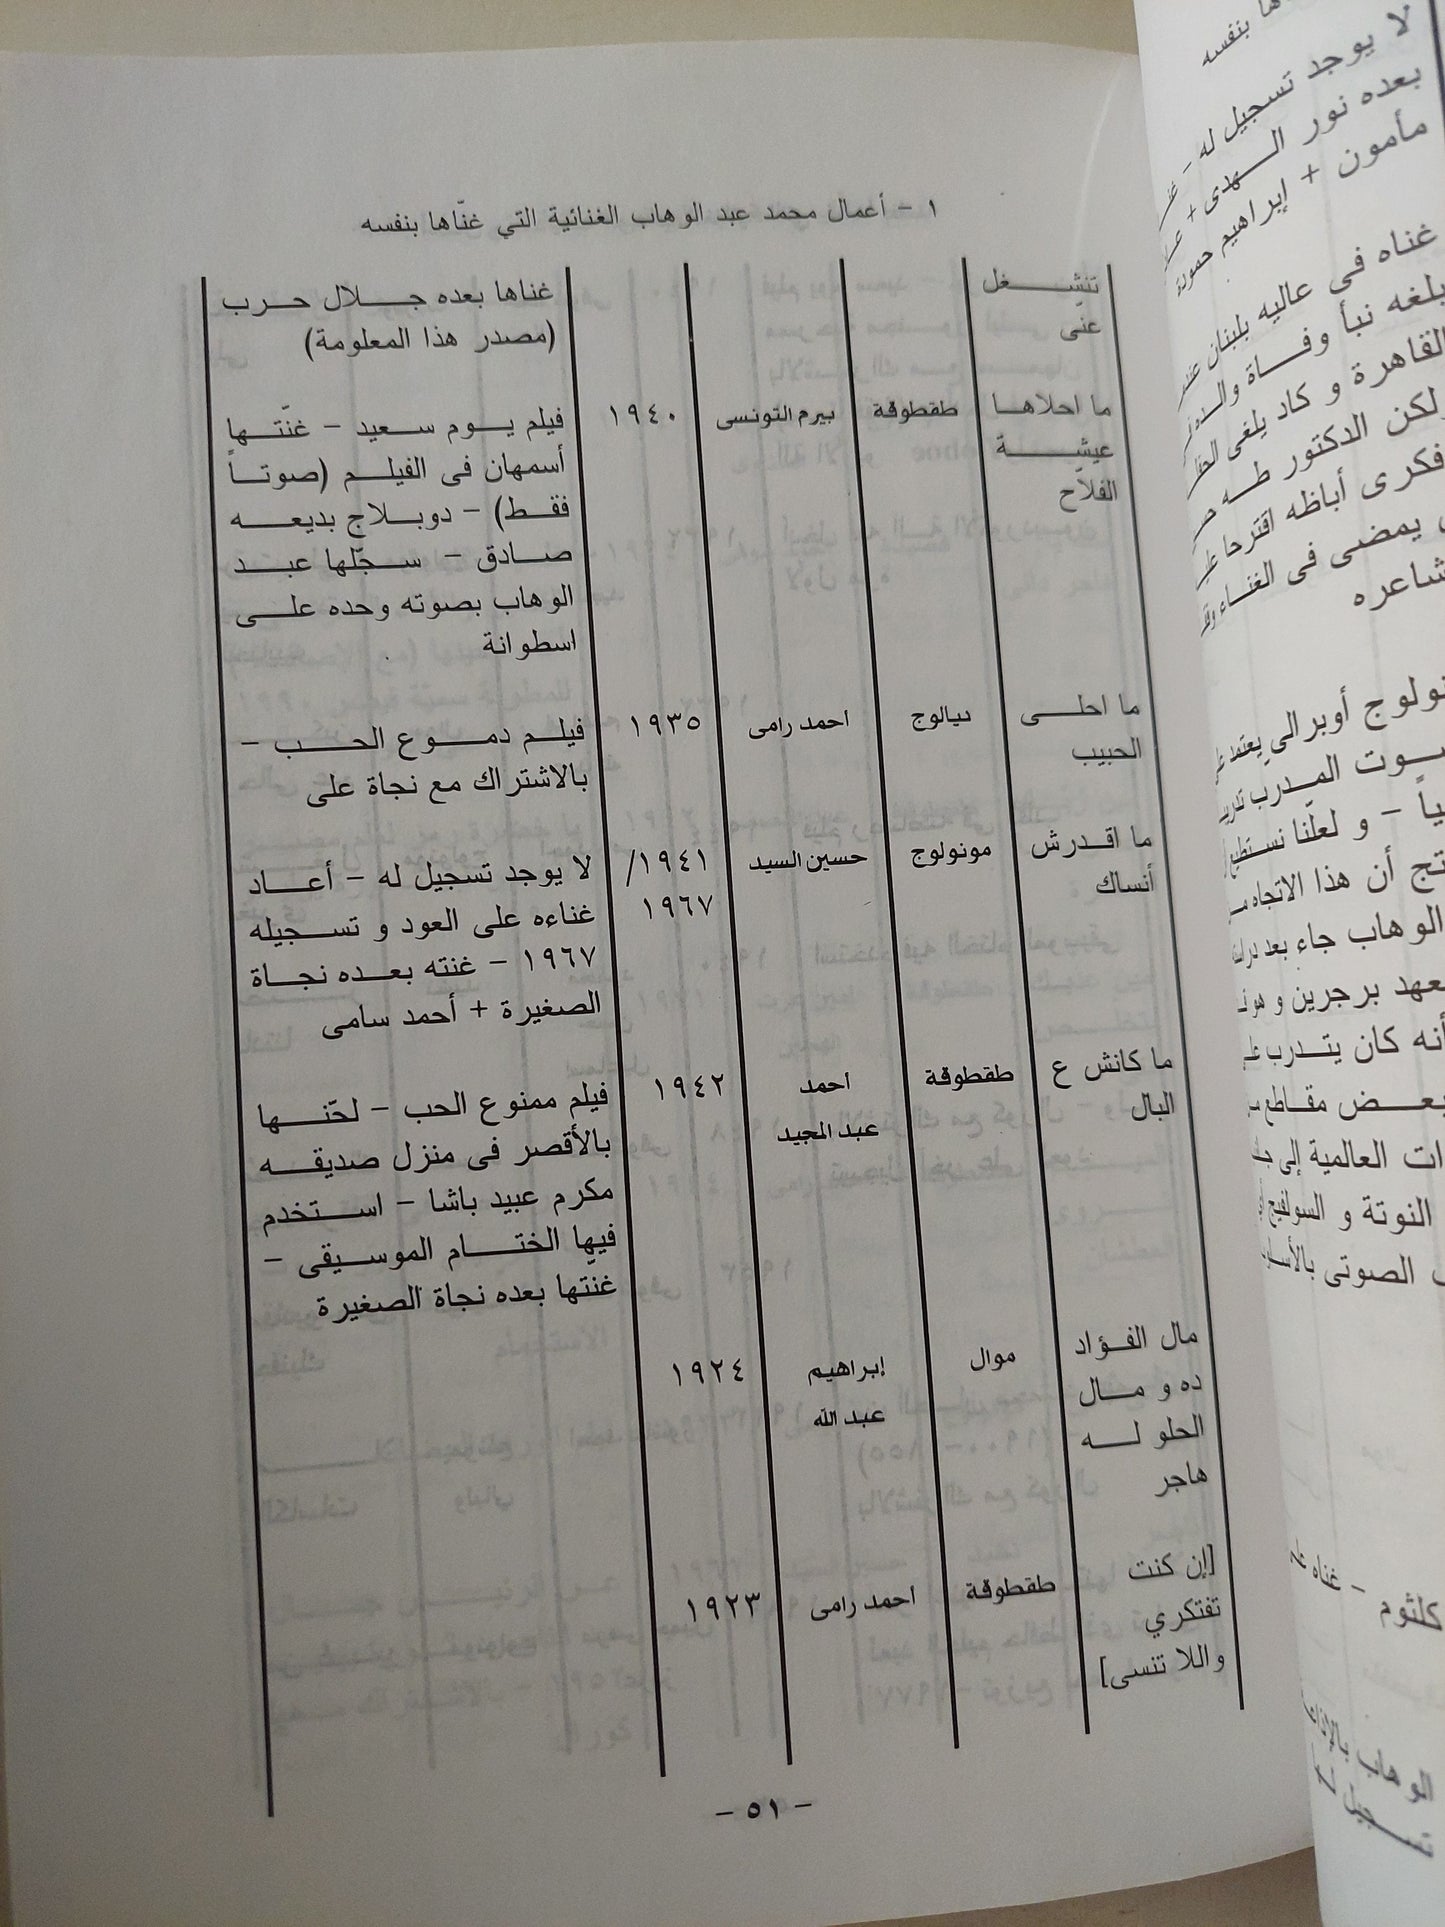 ١ - أعمال محمد عبد الوهاب الغنائية التي غنّاها بنفسه
تنشـــغل
عنّى
غناها بعده جـــلال حـــرب
(مصدر هذا المعلومة)
ما احلاهـــا
عيشـــــة
الفلاّح
طقطوقة
بيرم التونسى
١٩٤٠
فيلم يـــوم سـعيد - غنّتـــها
أسمهان فى الفيلـــم (صوتـــاً
فقـــط) - دوبـــلاج بديعـــه
صـــادق - ســـجّلها عبـــد
الوهاب بصوته وحده علـــى
اسطوانة
ما احلـــى
الحبيب
ديالوج
احمد رامى
١٩٣٥
فيلـــم دمـــوع الحـــب -
بالاشتراك مع نجاة على
ما اقـدرش
أنساك
مونولوج
حسين السيد
١٩٤١/
١٩٦٧
لا يوجد تسجيل له - أعـــاد
غناءه على العود و تســـجيله
١٩٦٧ - غنته بعـــده نجـــاة
الصغيرة + أحمد سامى
ما كانش ع
البال
طقطوقة
احمد
عبد المجيد
١٩٤٢
فيلم ممنوع الحب - لحّنـــها
بالأقصر فى منزل صديقـــه
مكرم عبيد باشا - اســـتخدم
فيها الختـــام الموســـيقى -
غنتها بعده نجاة الصغيرة
مال الفـؤاد
ده و مـــال
الحلو لـــه
هاجر
موال
إبراهيم
عبد الله
١٩٢٤
[إن كنت
تفتكري
واللا تنسى]
طقطوقة
احمد رامى
١٩٢٣
- ٥١ -
بنفسه
لا يوجد تسجيل له -
بعده نور الـــهدى +
مأمون + إبراهيم حمودة
غناه فى عاليه بلبنان
بلغه نبأ وفـــاة
القاهرة و كاد يلغى
لكن الدكتور طـــه
فكرى أباظه اقترحا
يمضى فى الغنـــاء
أوبرالي يعتمد
المـــدرب
- و لعلّنا نستطيع
أن هذا الاتجاه
الوهاب جاء بعد
برجرين و
أنه كان يتـــدرب
مقـــاطع
العالمية إلى
النوتة و السولفيج
الصوتى
- غناه
كلثوم
الوهاب